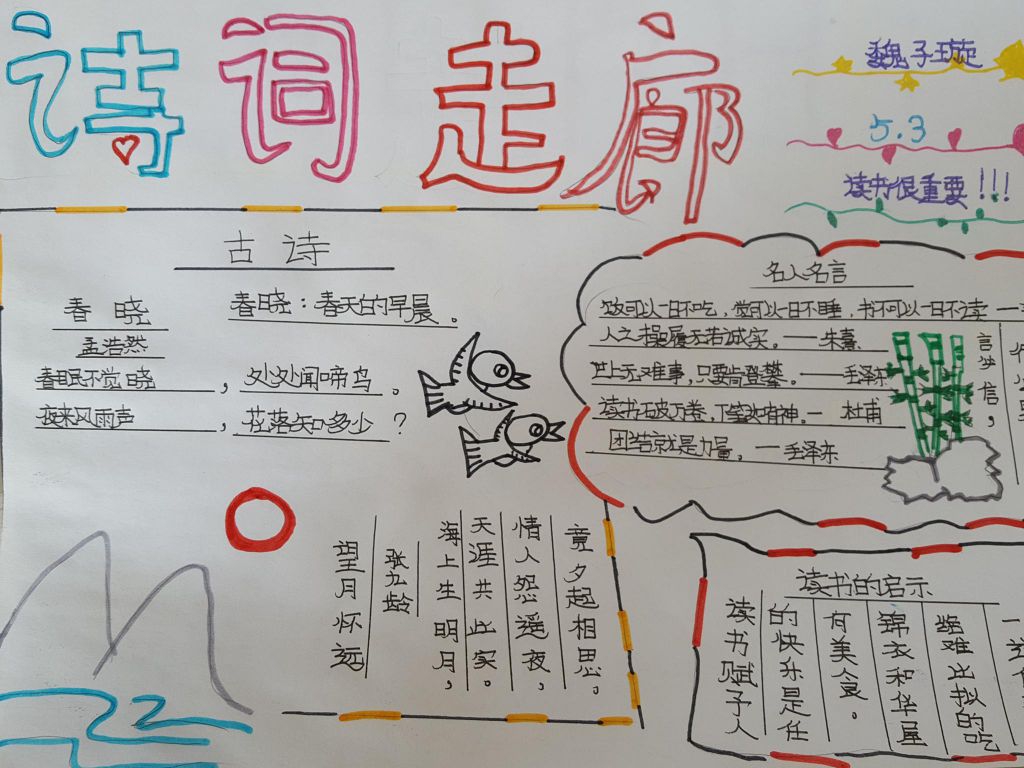 诗词走廊
魏子璇
5.3
读书很重要!!!
古诗
春晓
孟浩然
春眠不觉晓，处处闻啼鸟。
夜来风雨声，花落知多少？
春晓：春天的早晨。
望月怀远
张九龄
海上生明月，
天涯共此家。
情人怨遥夜，
竟夕起相思。
名人名言
饭可以一日不吃，觉可以一日不睡，书不可以一日不读
人之操履无若诚实。——朱熹
世上无难事，只要肯登攀。——毛泽东
读书破万卷，下笔如有神。— 杜甫
团结就是力量。—毛泽东
言必信，
读书的启示
读书赋予人
的快乐是任
有美食。
锦衣和华屋
都难比拟的吃